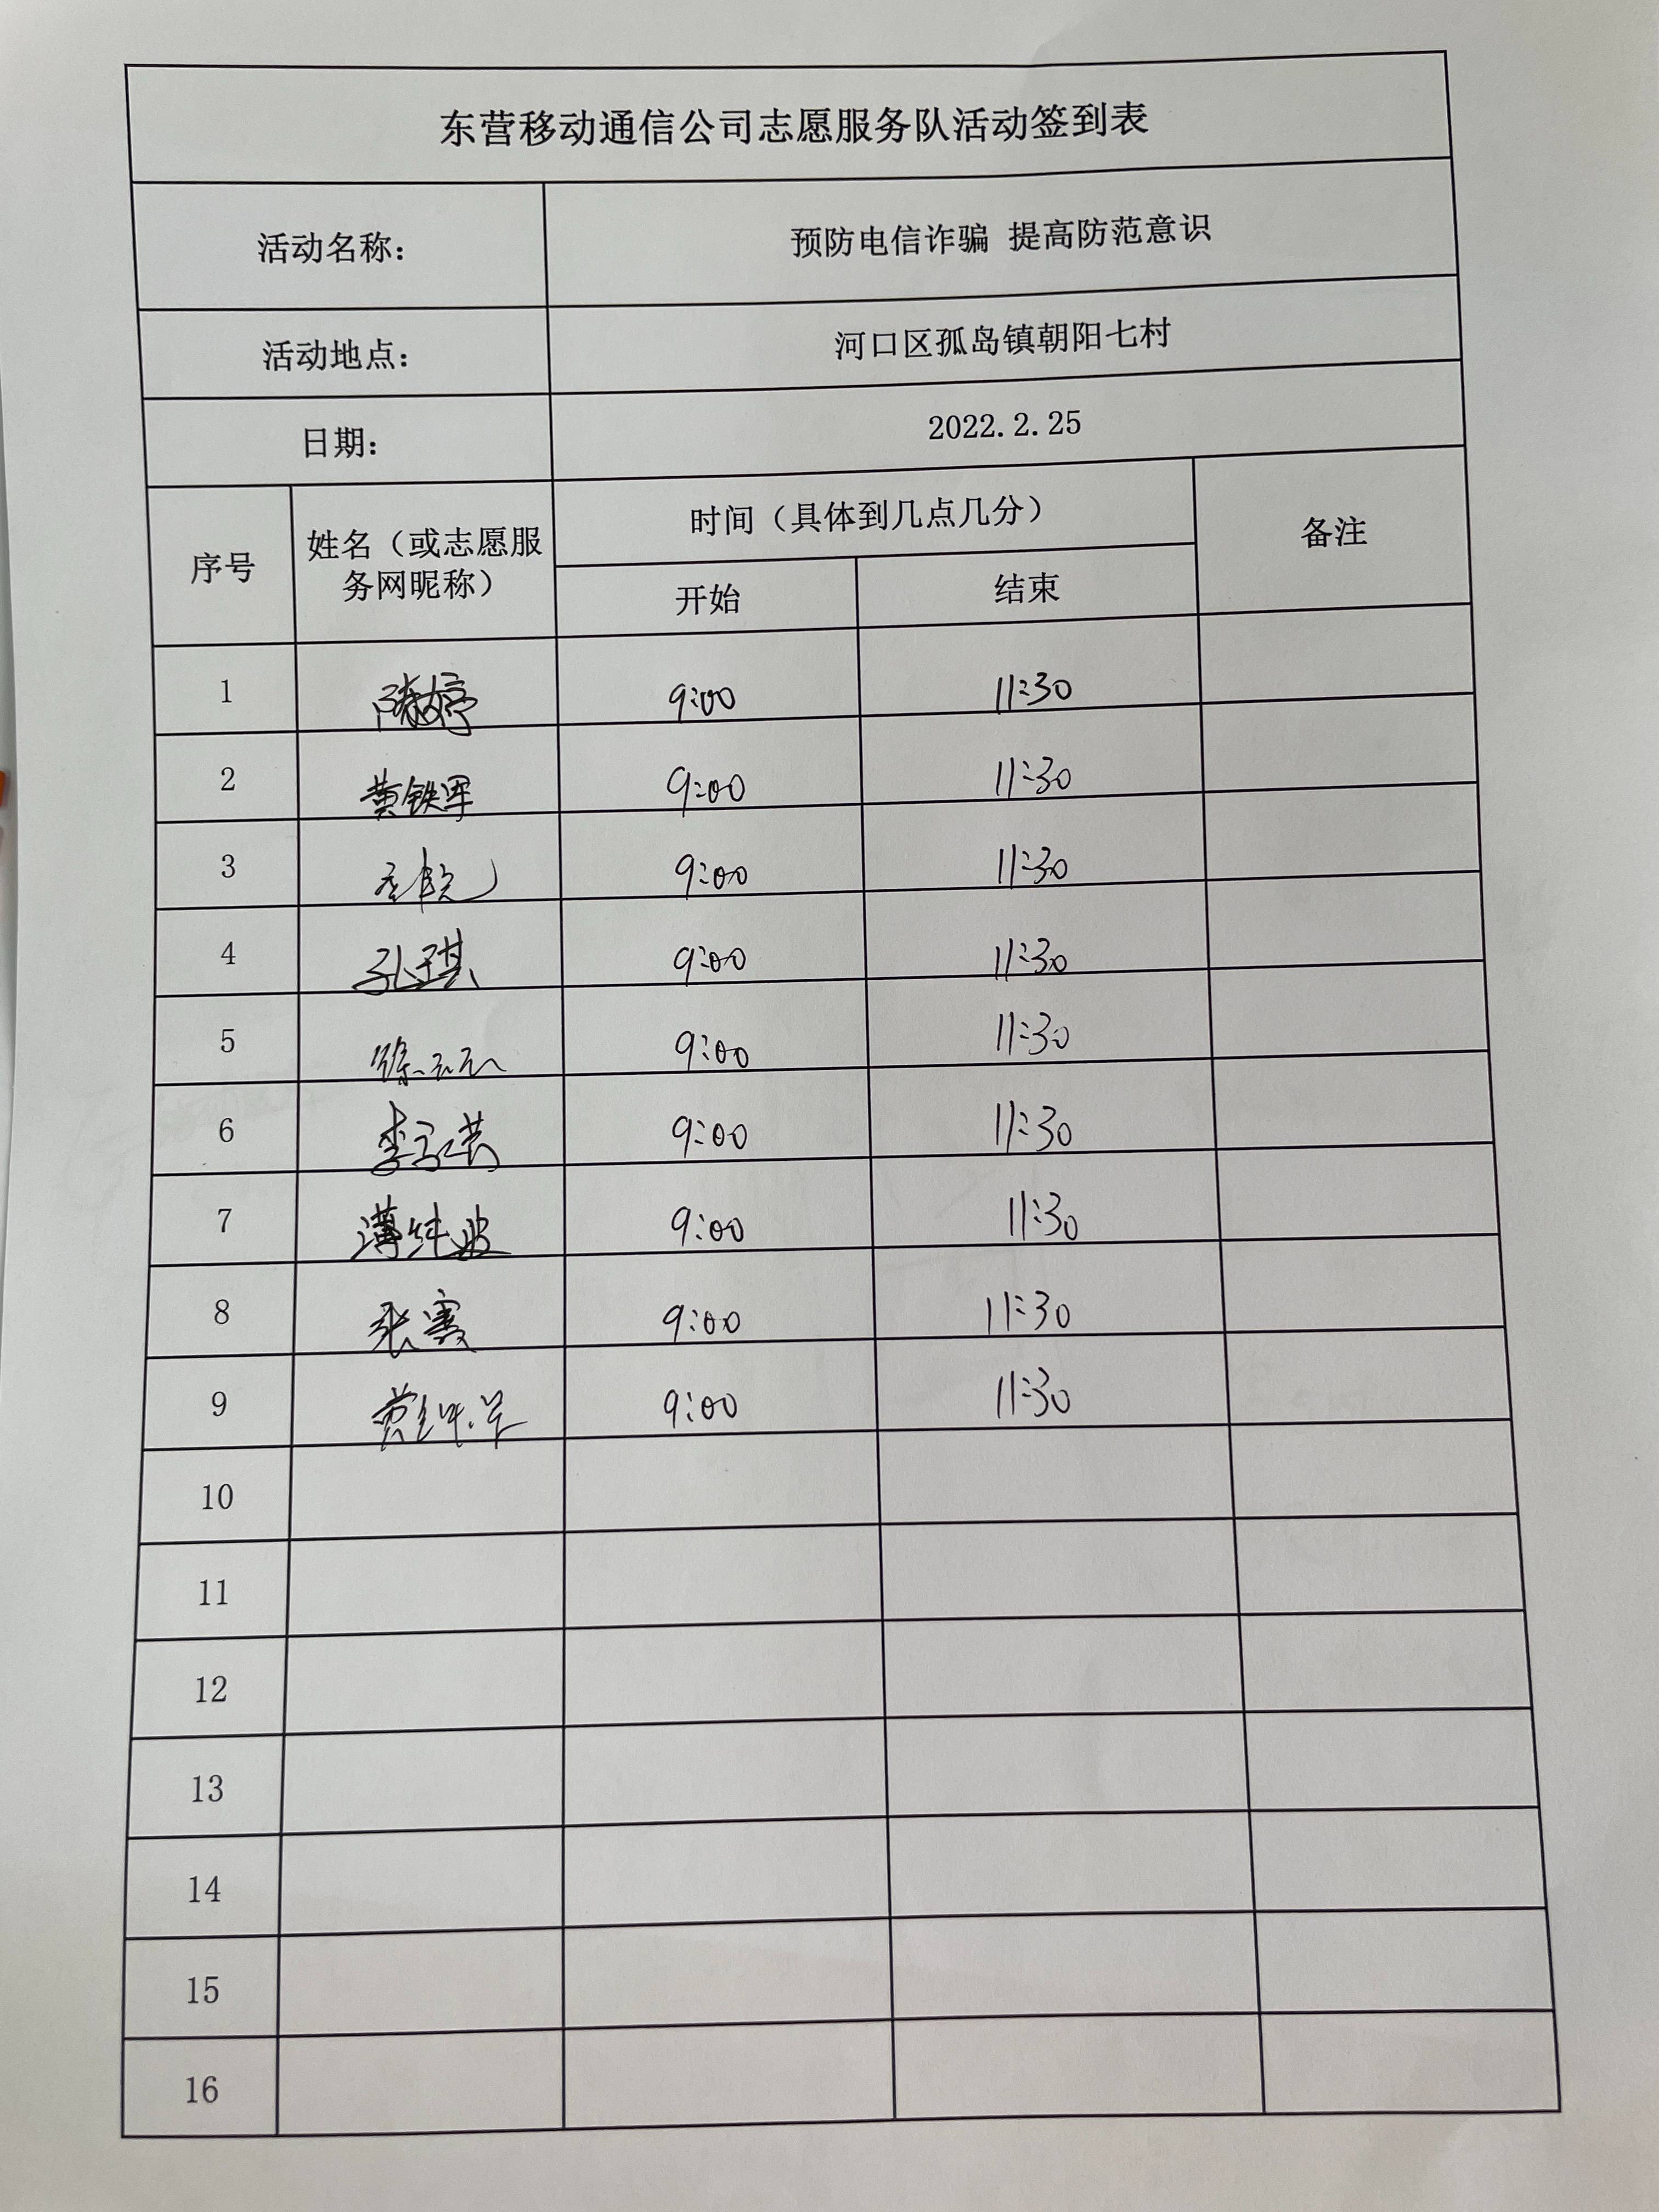 东营移动通信公司志愿服务队活动签到表
活动名称： 预防电信诈骗 提高防范意识
活动地点： 河口区孤岛镇朝阳七村
日期： 2022.2.25
序号 姓名（或志愿服务网昵称） 时间（具体到几点几分） 备注
开始 结束
1 9:00 11:30
2 黄铁军 9:00 11:30
3 9:00 11:30
4 孔琪 9:00 11:30
5 徐 9:00 11:30
6 李 9:00 11:30
7 薄纯波 9:00 11:30
8 张赛 9:00 11:30
9 9:00 11:30
10
11
12
13
14
15
16